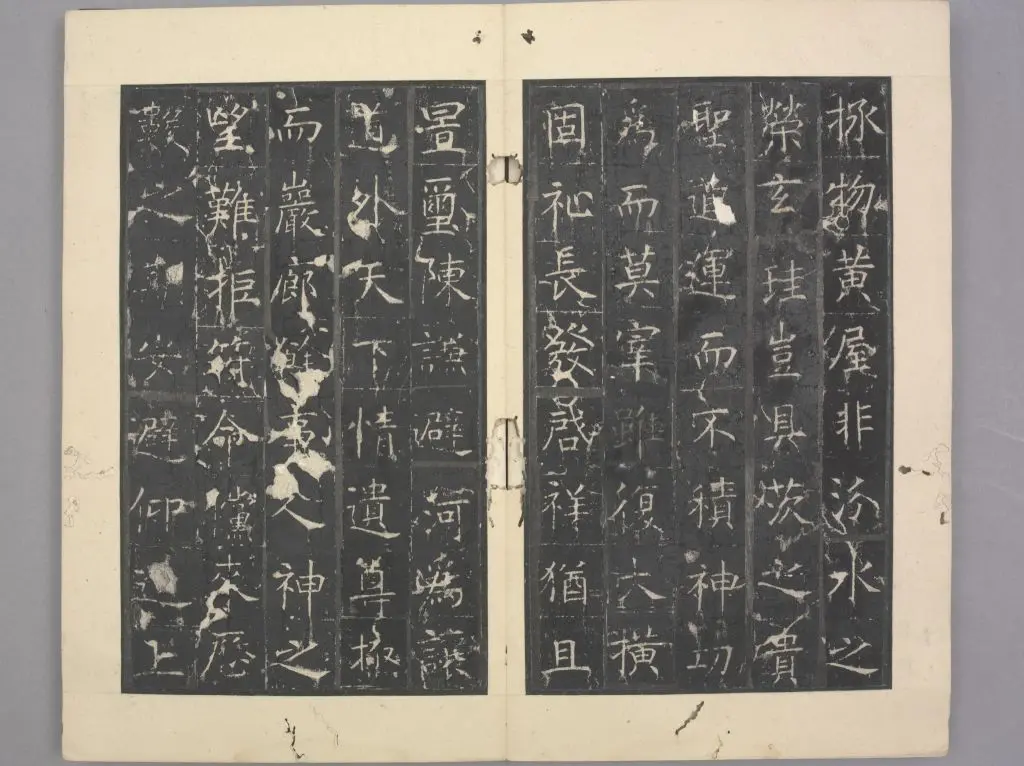 拯物黃屋非汾水之
榮玄珪豈具茨之貴
聖道運而不積神功
為而莫宰雖復大橫
固祉長發啓祥猶且
疊璽陳謙避河為讓
道外天下情遺尊極
而巖廊神之
望難拒符命儻來歷
數之安避仰上